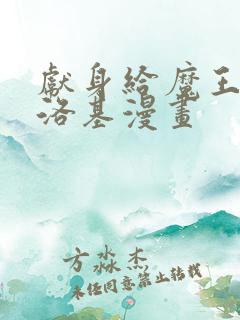 獻身給魔王
洛基漫畫
方淼杰
未任同意禁止轉載